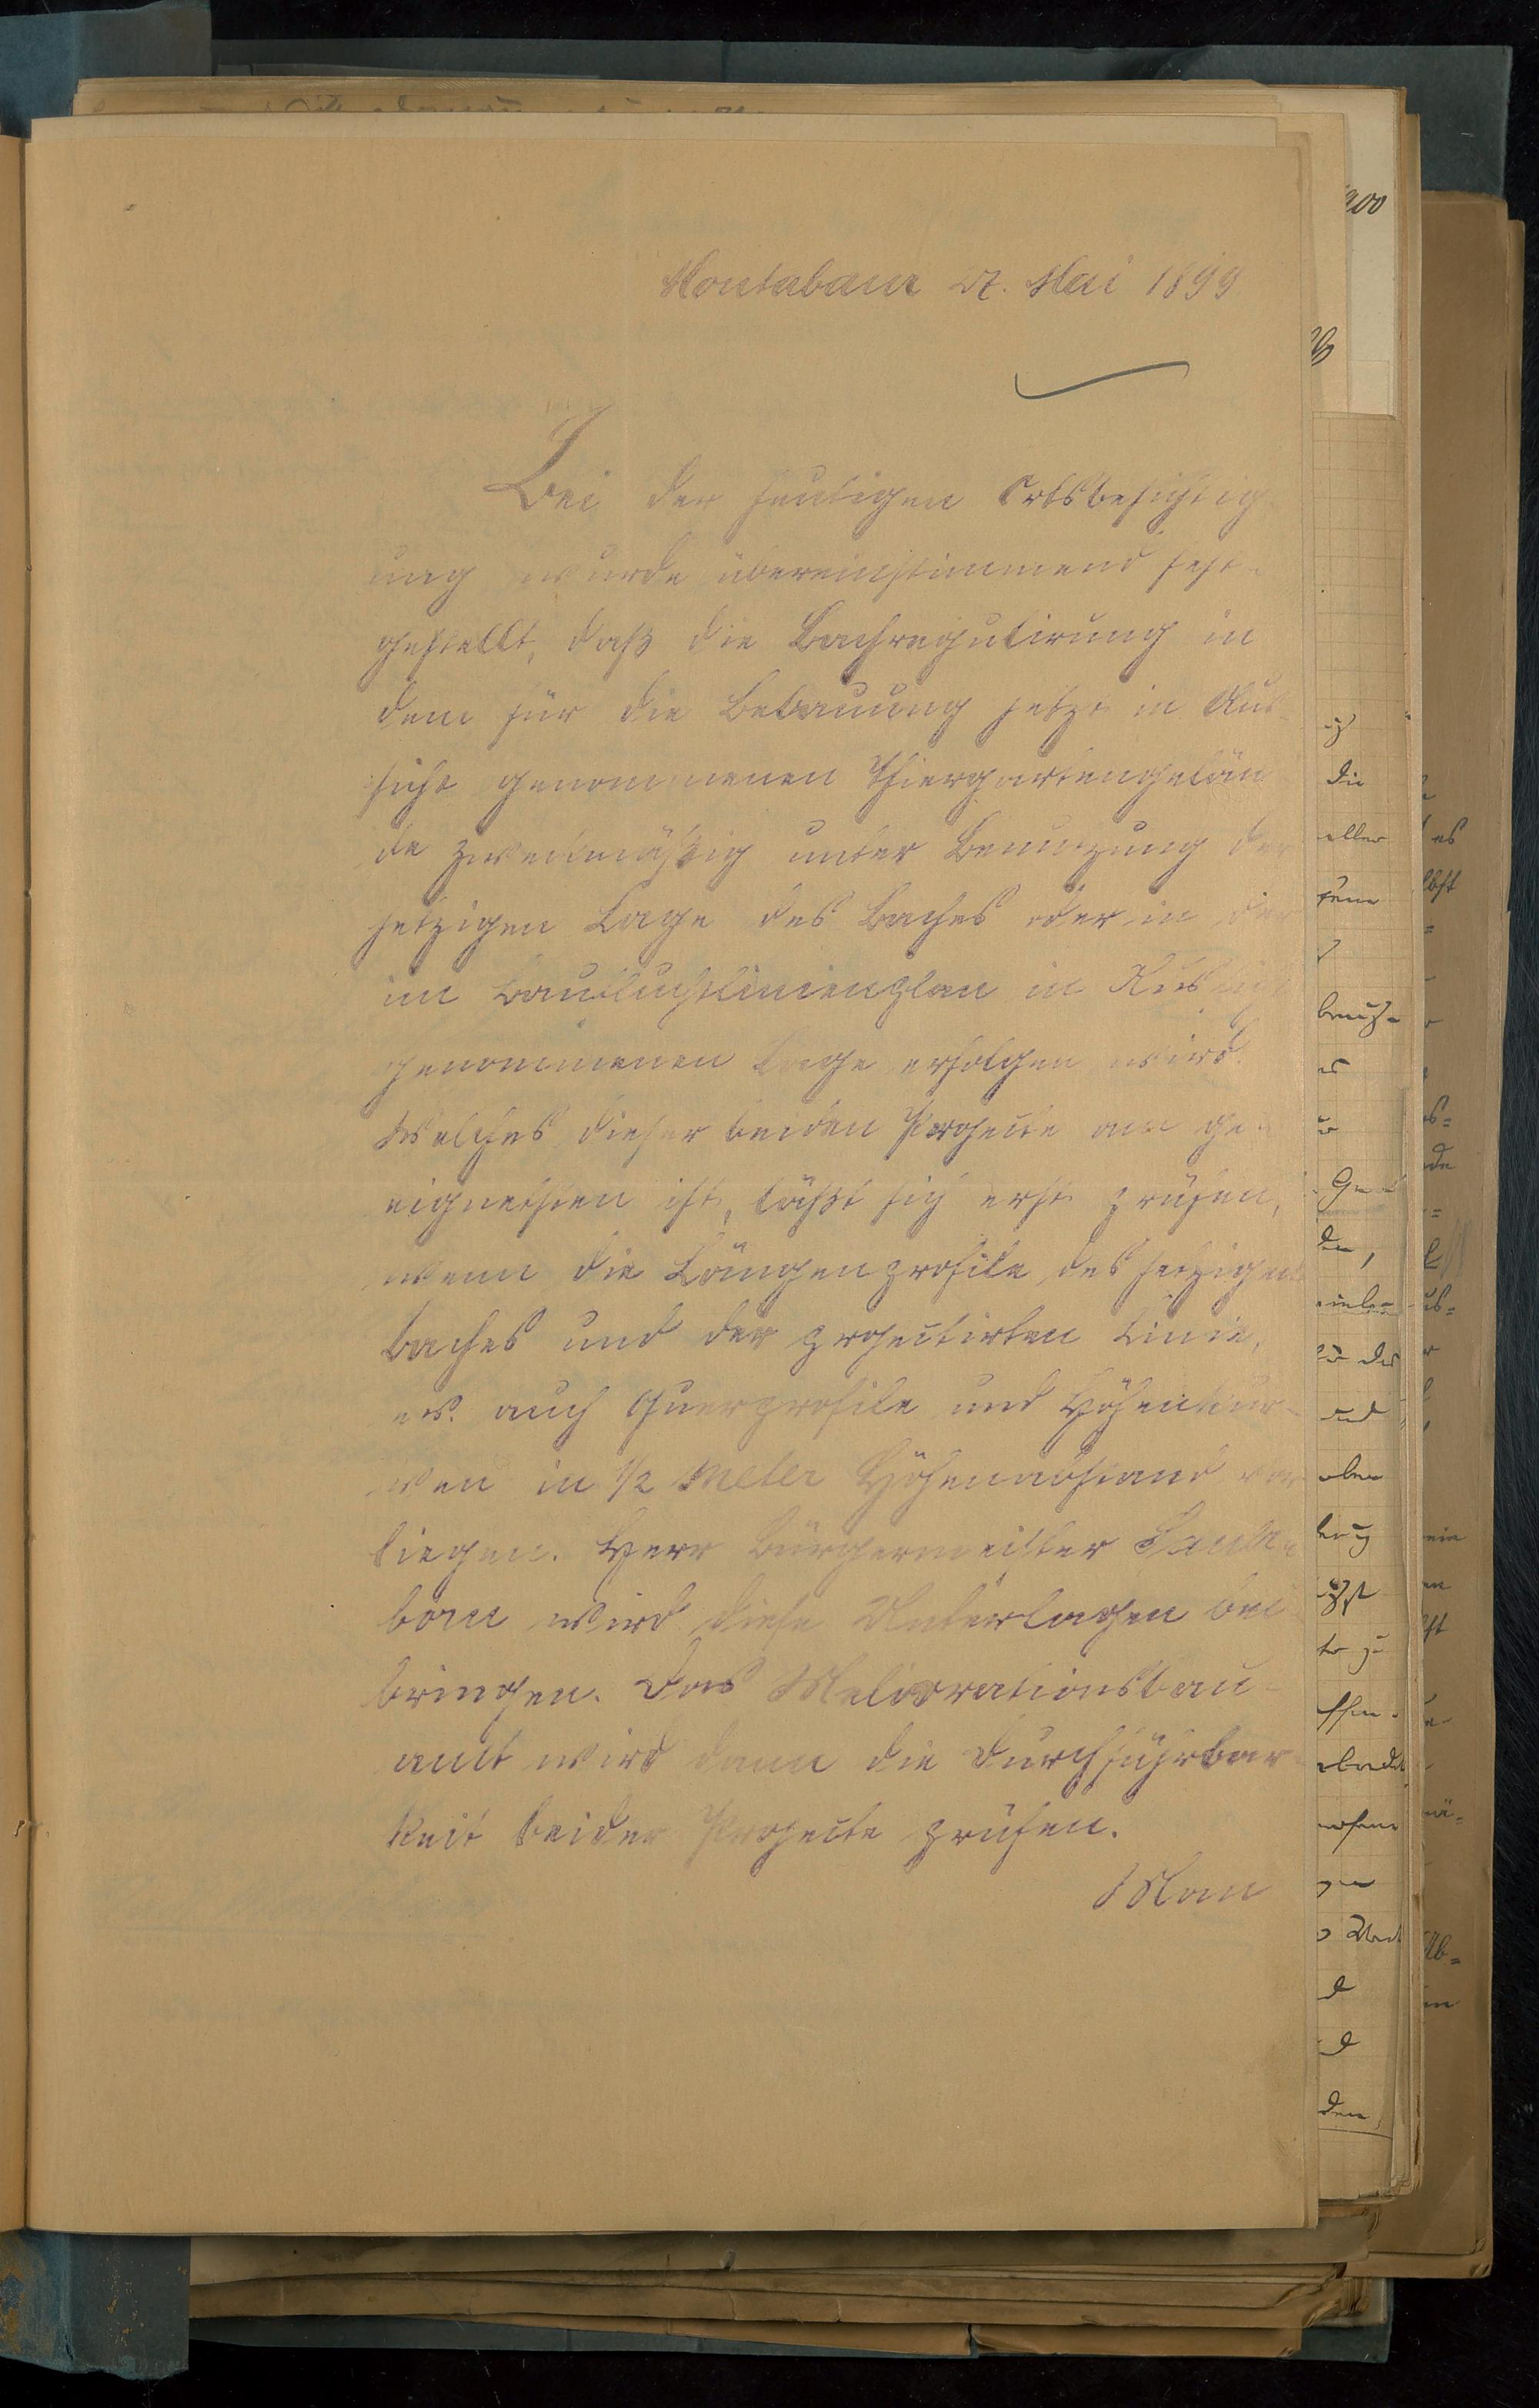 Montabaur 27. Mai 1899
Bei der heutigen Ortsbesichtig
ung wurde übereinstimmend fest-
gestellt, daß die Bachregulirung in
dem für die Bebauung jetzt in Aus
sicht genommenen Thiergartengelän
de zweckmäßig unter Benutzung der
jetzigen Lage des Baches oder in der
im Baufluchtlinienplan in Aussicht
genommenen Lage erfolgen wird.
Welches dieser beiden Projecte am ge-
eignetsten ist, läßt sich erst prüfen,
wenn die Längenprofile des jetzigen
Baches und der projectirten Linie,
ev. auch Querprofile und Höhenkur-
ven in 1/2 Meter Höhenabstand vor
liegen. Herr Bürgermeister Sauer
born wird diese Unterlagen bei
bringen. Das Meliorationsbau-
amt wird dann die Durchführbar
keit beider Projecte prüfen.
Man